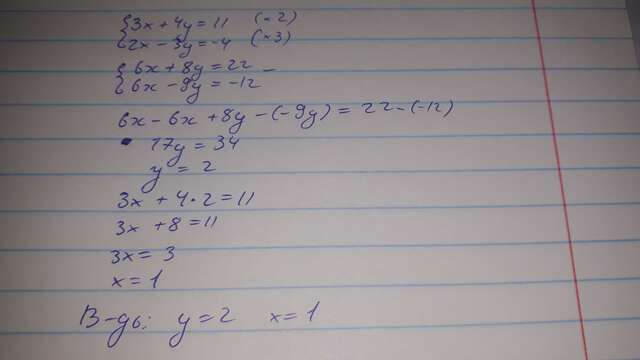 {3x + 4y = 11 (×2)
{2x - 3y = -4 (×3)
{6x + 8y = 22 -
{6x - 9y = -12
6x - 6x + 8y - (-9y) = 22 - (-12)
17y = 34
y = 2
3x + 4·2 = 11
3x + 8 = 11
3x = 3
x = 1
В-дь: y = 2 x = 1